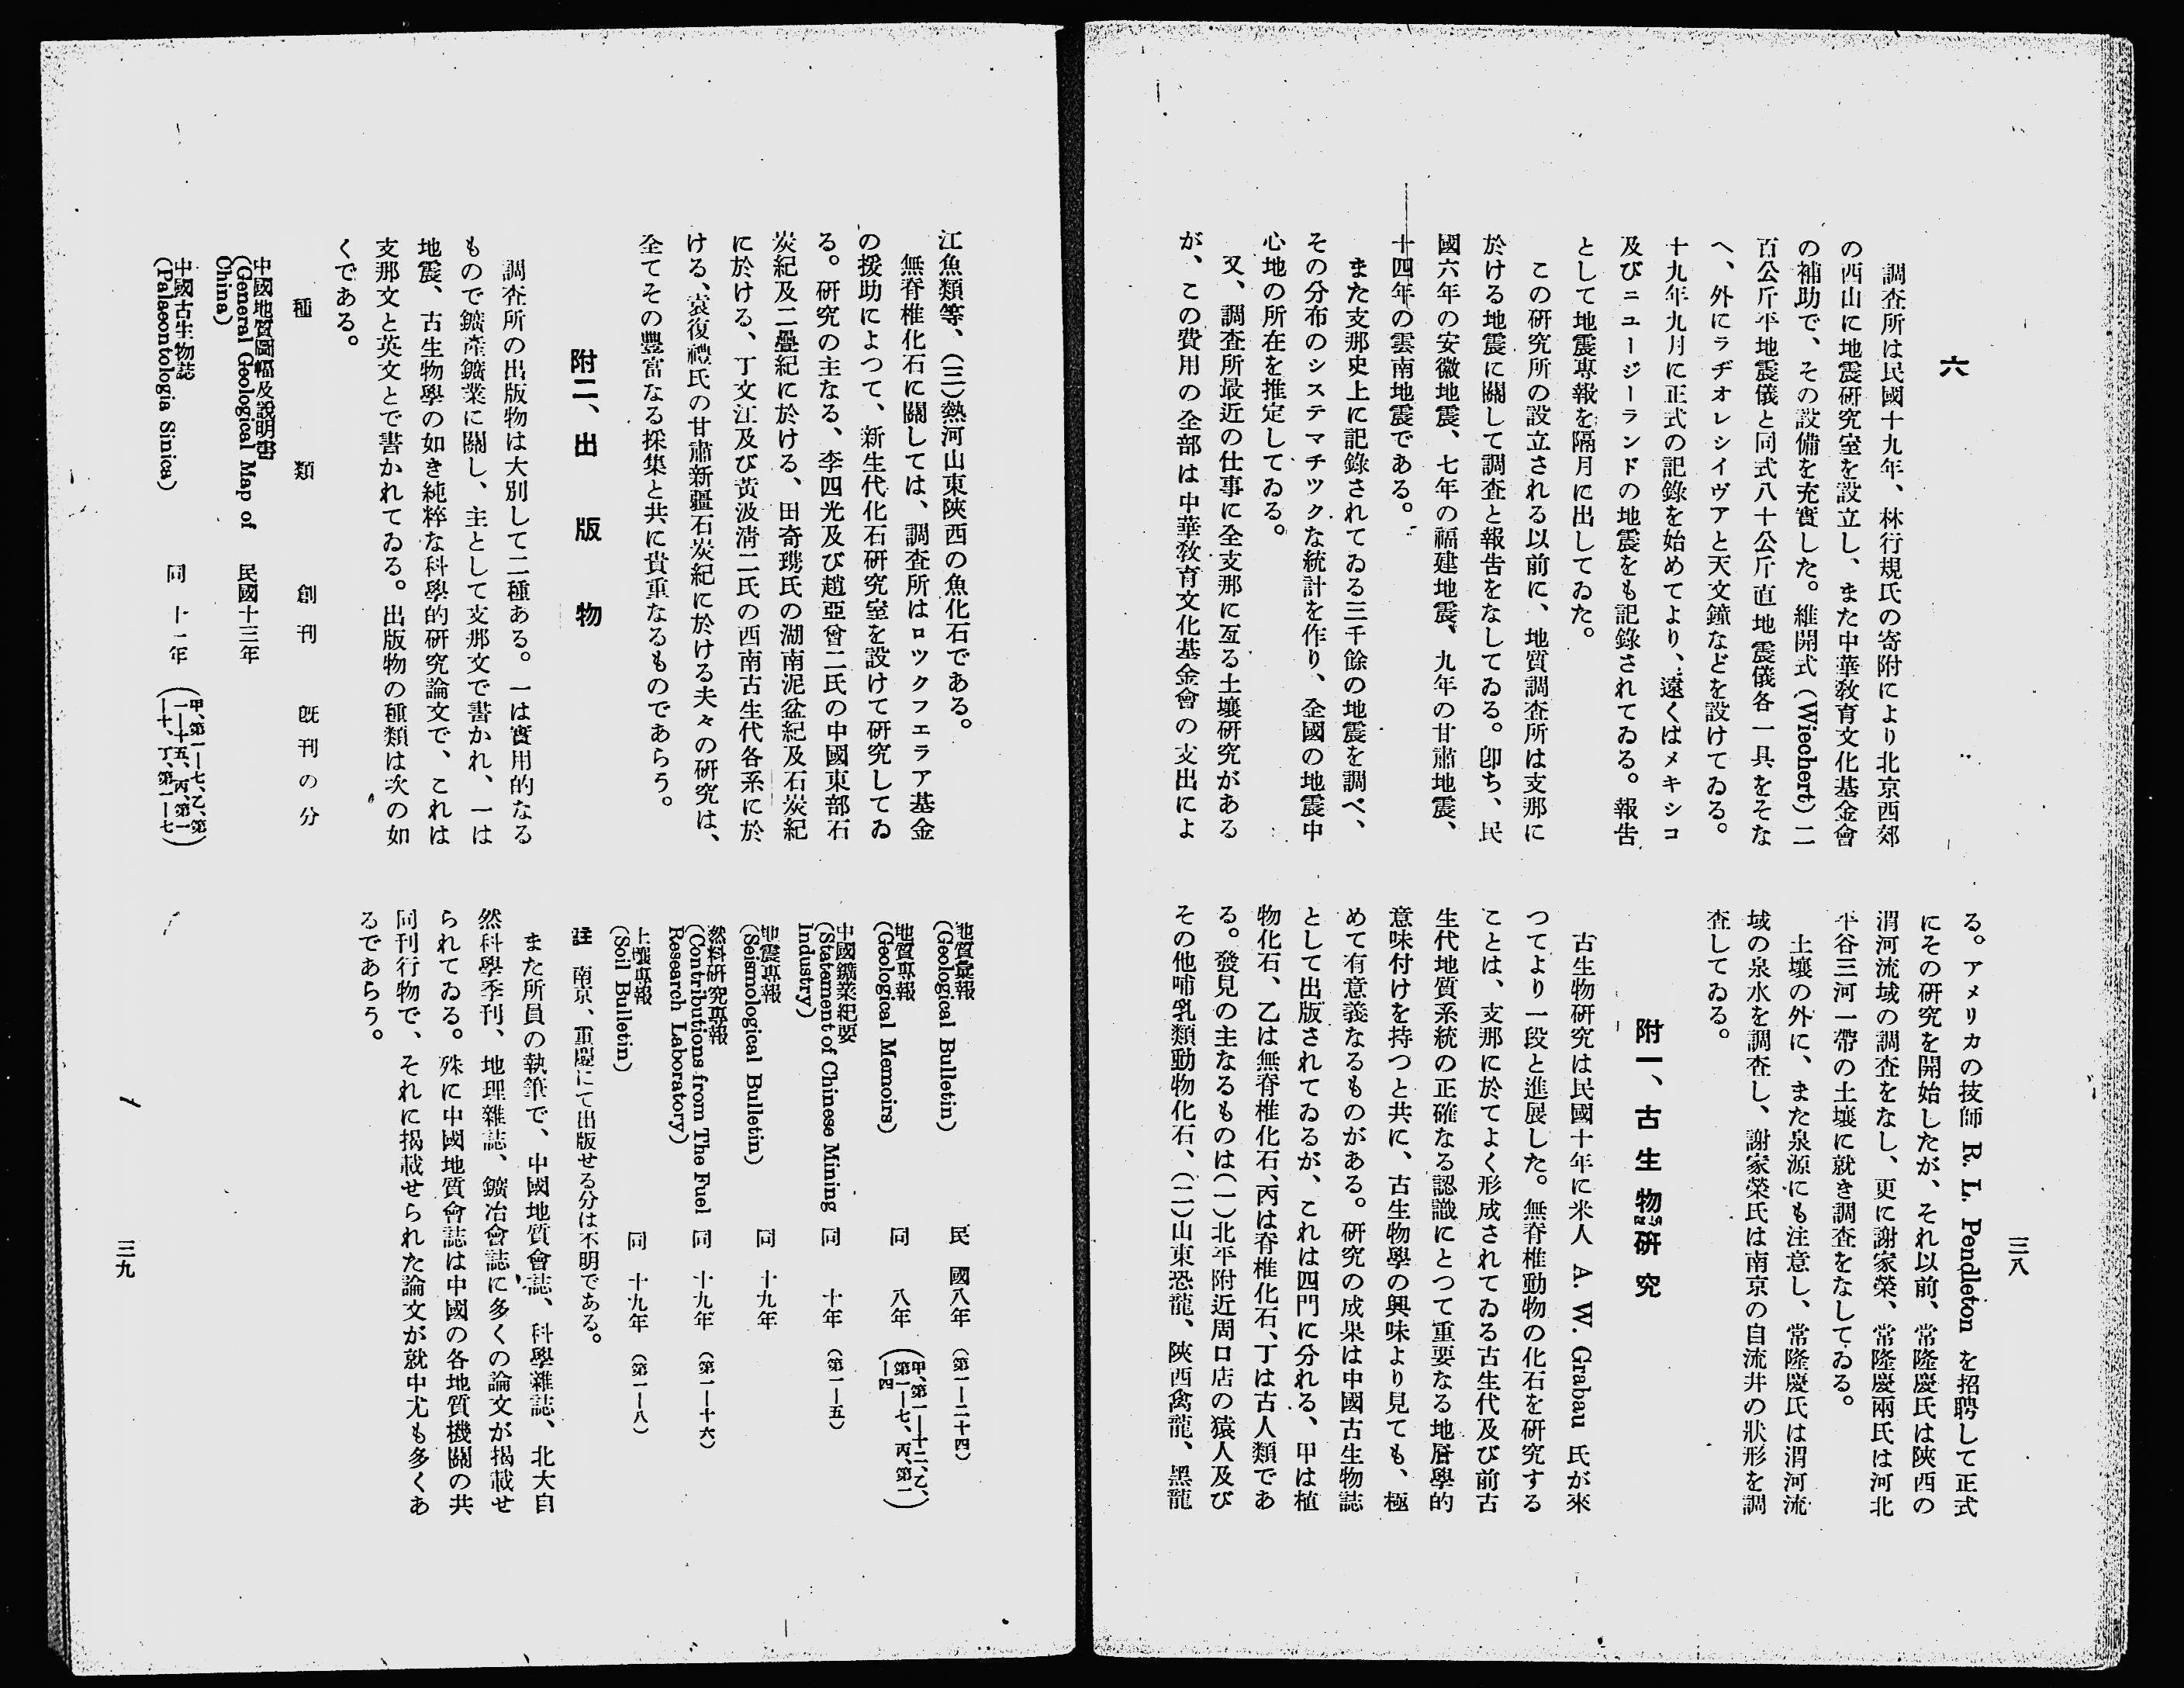 三八
六
調査所は民國十九年、林行規氏の寄附により北京西郊
の西山に地震研究室を設立し、また中華敎育文化基金會
の補助で、その設備を充實した。維開式(Wiechert)二
百公斤平地震儀と同式八十公斤直地震儀各一具をそな
へ、外にラヂオレシイヴアと天文鐘などを設けてゐる。
十九年九月に正式の記錄を始めてより、遠くはメキシコ
及びニュージーランドの地震をも記錄されてゐる。報告
として地震專報を隔月に出してゐた。
この研究所の設立される以前に、地質調査所は支那に
於ける地震に關して調査と報吿をなしてゐる。卽ち、民
國六年の安徽地震、七年の福建地震、九年の甘肅地震、
十四年の雲南地震である。
また支那史上に記錄されてゐる三千餘の地震を調べ、
その分布のシステマチツクな統計を作り、全國の地震中
心地の所在を推定してゐる。
又、調査所最近の仕事に全支那に亙る土壤研究がある
が、この費用の全部は中華敎育文化基金會の支出によ
る。アメリカの技師 R. L. Pendleton を招聘して正式
にその研究を開始したが、それ以前、常隆慶氏は陝西の
渭河流域の調査をなし、更に謝家榮、常隆慶兩氏は河北
平谷三河一帶の土壤に就き調査をなしてゐる。
土壤の外に、また泉源にも注意し、常隆慶氏は渭河流
域の泉水を調査し、謝家榮氏は南京の自流井の狀形を調
査してゐる。
附一、古生物硏究
古生物研究は民國十年に米人 A. W. Grabau 氏が來
つてより一段と進展した。無脊椎動物の化石を研究する
ことは、支那に於てよく形成されてゐる古生代及び前古
生代地質系統の正確なる認識にとつて重要なる地層學的
意味付けを持つと共に、古生物學の興味より見ても、極
めて有意義なるものがある。研究の成果は中國古生物誌
として出版されてゐるが、これは四門に分れる、甲は植
物化石、乙は無脊椎化石、丙は脊椎化石、丁は古人類であ
る。發見の主なるものは(一)北平附近周口店の猿人及び
その他哺乳類動物化石、(二)山東恐龍、陝西禽龍、黑龍
江魚類等、(三)熱河山東陝西の魚化石である。
無脊椎化石に關しては、調査所はロツクフエラア基金
の援助によつて、新生代化石研究室を設けて研究してゐ
る。研究の主なる、李四光及び趙亞曾二氏の中國東部石
炭紀及二疊紀に於ける、田奇㻪氏の湖南泥盆紀及石炭紀
に於ける、丁文江及び黃汲淸二氏の西南古生代各系に於
ける、袁復禮氏の甘肅新疆石炭紀に於ける夫々の研究は、
全てその豐富なる採集と共に貴重なるものであらう。
附二、出版物
調査所の出版物は大別して二種ある。一は實用的なる
もので鑛產鑛業に關し、主として支那文で書かれ、一は
地震、古生物學の如き純粹な科學的研究論文で、これは
支那文と英文とで書かれてゐる。出版物の種類は次の如
くである。
種類 創刊 旣刊の分
中國地質圖幅及說明書
(General Geological Map of
China) 民國十三年
中國古生物誌
(Palaeontologia Sinica) 同 十一年 (甲、第一—七、乙、第一—十五、丙、第一—十、丁、第一—七)
地質彙報
(Geological Bulletin) 民國八年 (第一—二十四)
地質專報
(Geological Memoirs) 同 八年 (甲、第一—十二、乙、第一—七、丙、第一—四)
中國鑛業紀要
(Statement of Chinese Mining
Industry) 同 十年 (第一—五)
地震專報
(Seismological Bulletin) 同 十九年
燃料研究專報
(Contributions from The Fuel
Research Laboratory) 同 十九年 (第一—十六)
土壤專報
(Soil Bulletin) 同 十九年 (第一—八)
註 南京、重慶にて出版せる分は不明である。
また所員の執筆で、中國地質會誌、科學雜誌、北大自
然科學季刊、地理雜誌、鑛冶會誌に多くの論文が揭載せ
られてゐる。殊に中國地質會誌は中國の各地質機關の共
同刊行物で、それに揭載せられた論文が就中尤も多くあ
るであらう。
三九